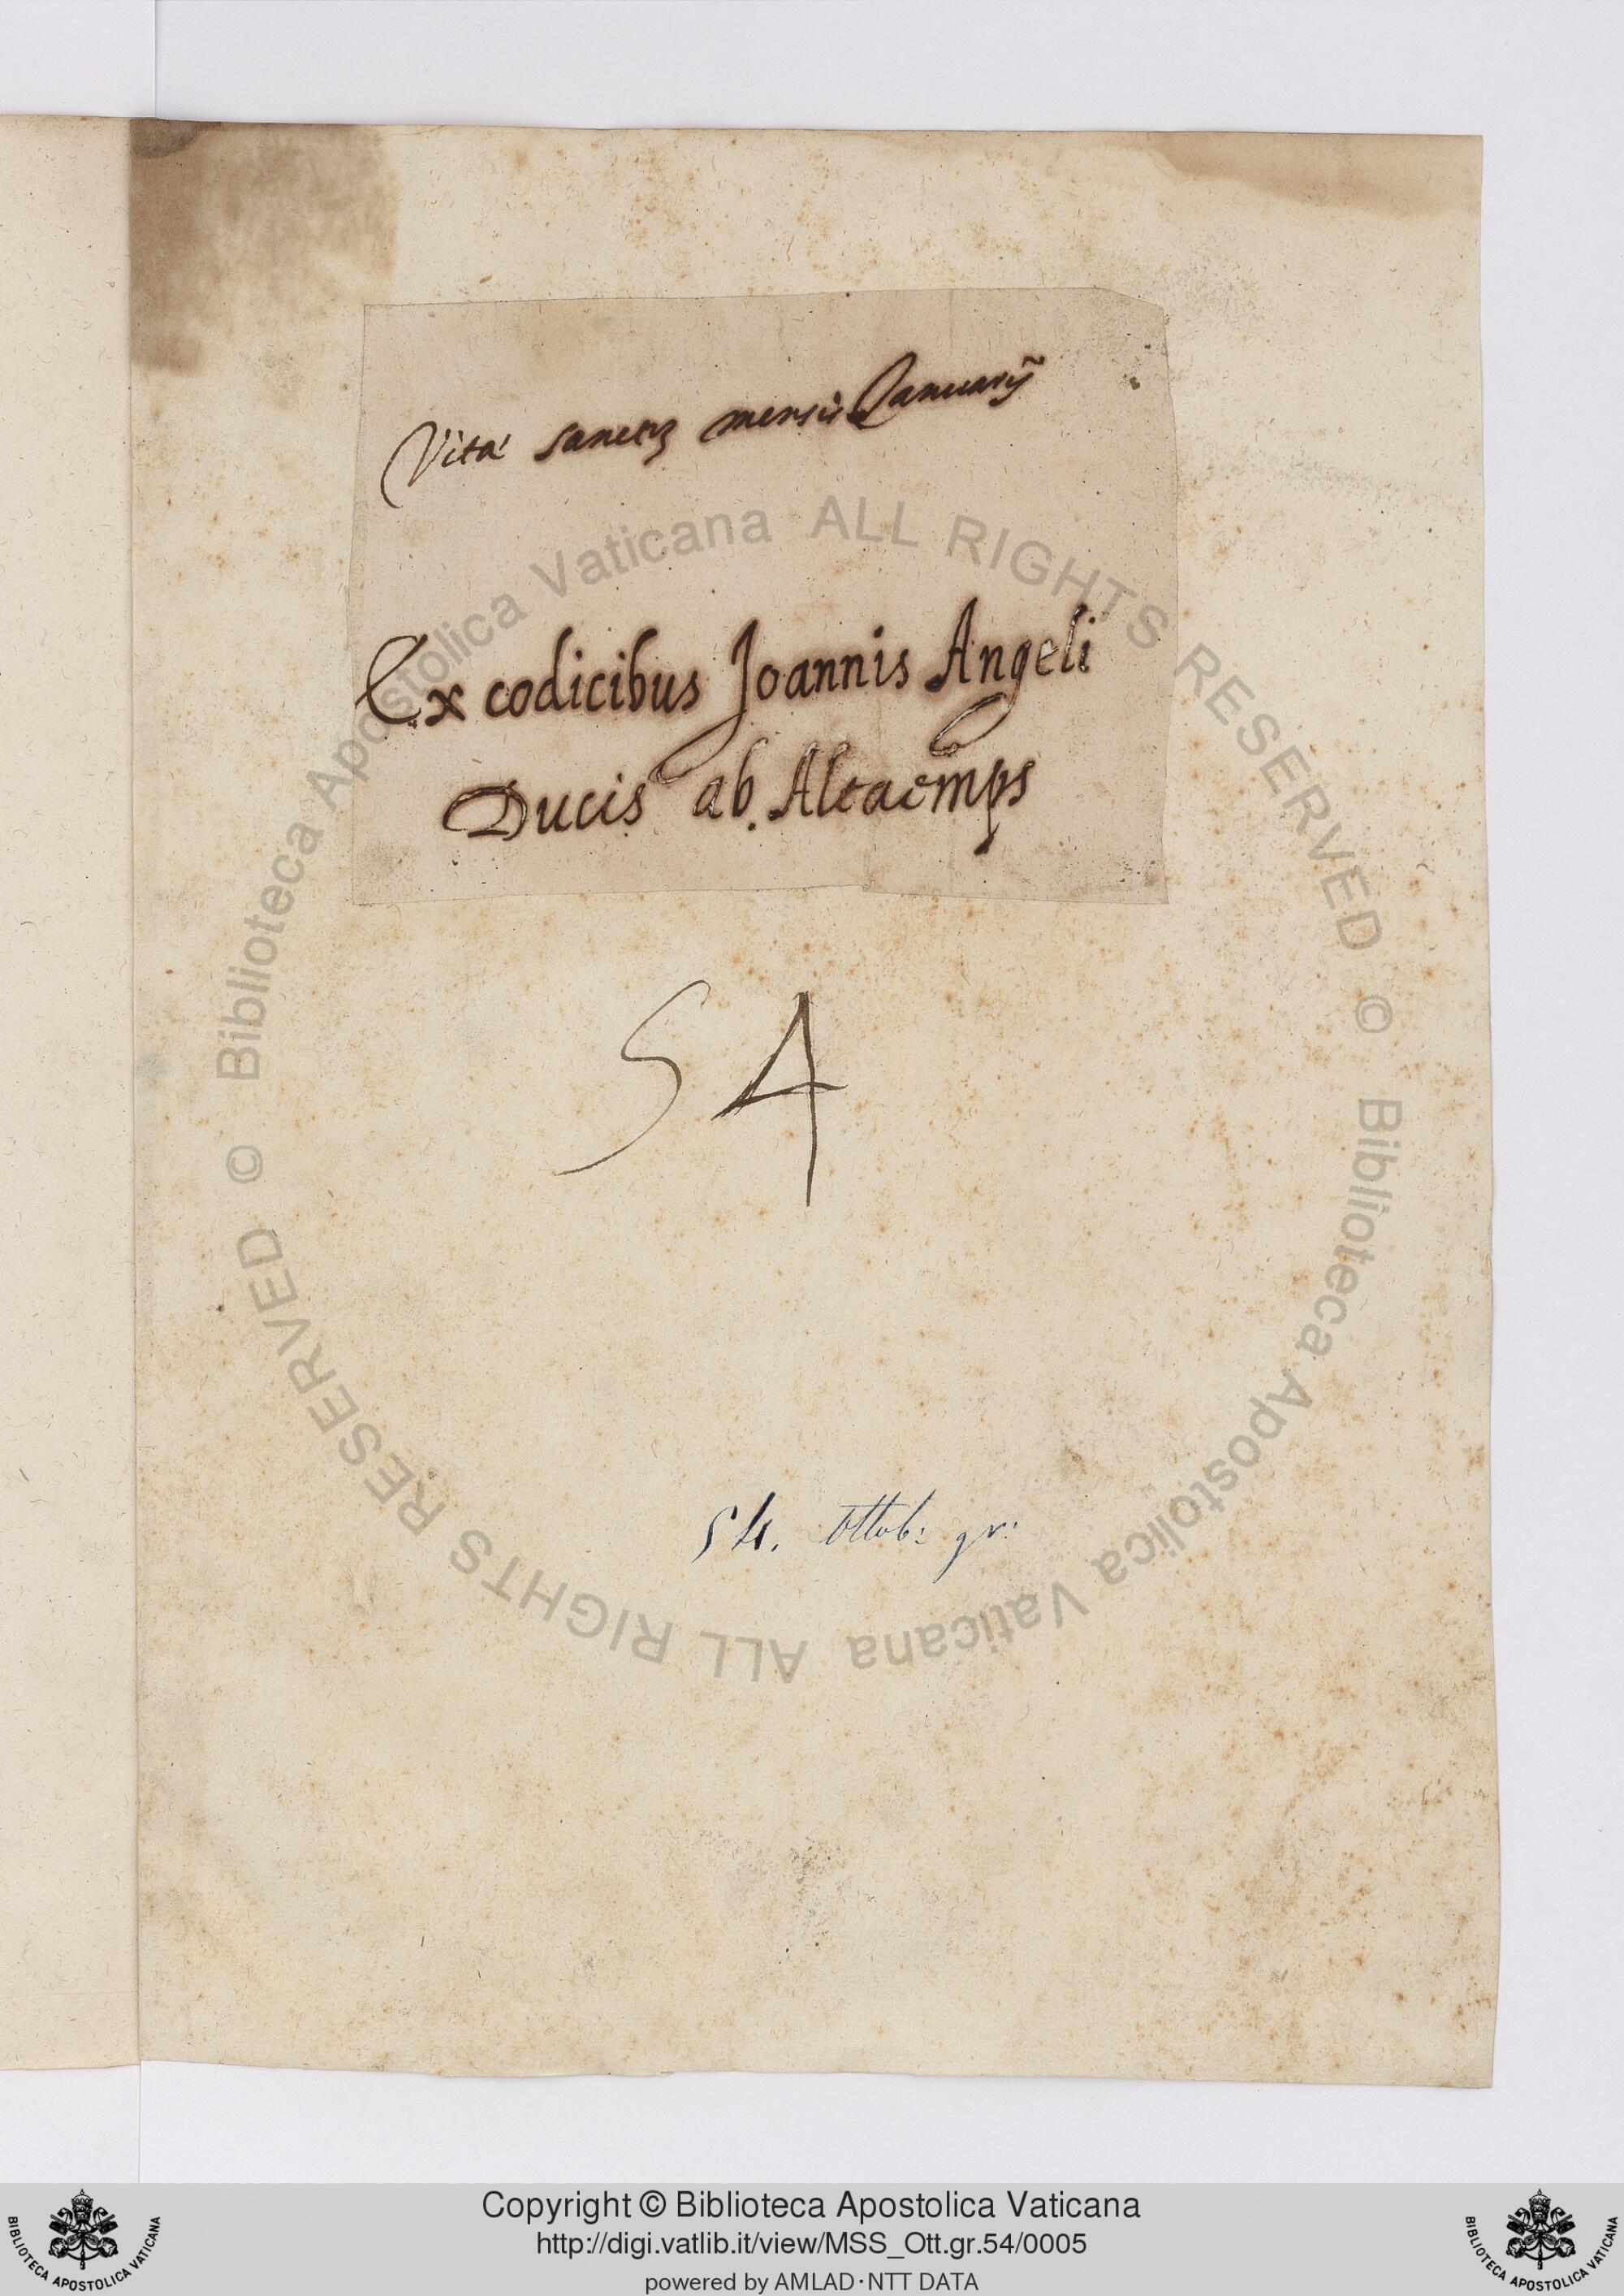 Vita sanctoꝝ mensis Januarij
Ex codicibus Joannis Angeli
Ducis ab Altaemps
54
54. Ottob: gr:
© Biblioteca Apostolica Vaticana ALL RIGHTS RESERVED
© Biblioteca Apostolica Vaticana ALL RIGHTS RESERVED
Copyright © Biblioteca Apostolica Vaticana
http://digi.vatlib.it/view/MSS_Ott.gr.54/0005
powered by AMLAD·NTT DATA
BIBLIOTECA APOSTOLICA VATICANA
BIBLIOTECA APOSTOLICA VATICANA